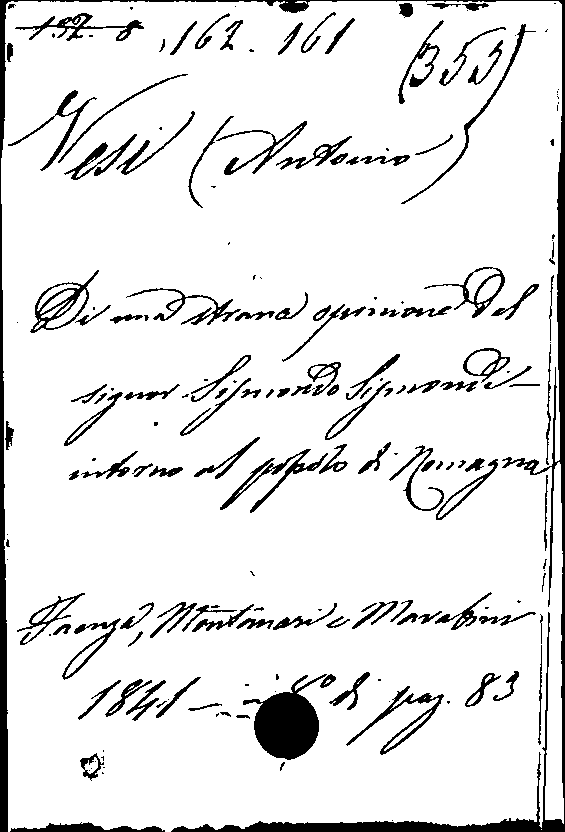 137. 8, 162. 161 (353)
Vesi (Antonio)
Di una strana opinione del
signor Sismondo Sismondi
intorno al popolo di Romagna
Faenza, Montanari e Marabini
1841 — 8° di pag. 83